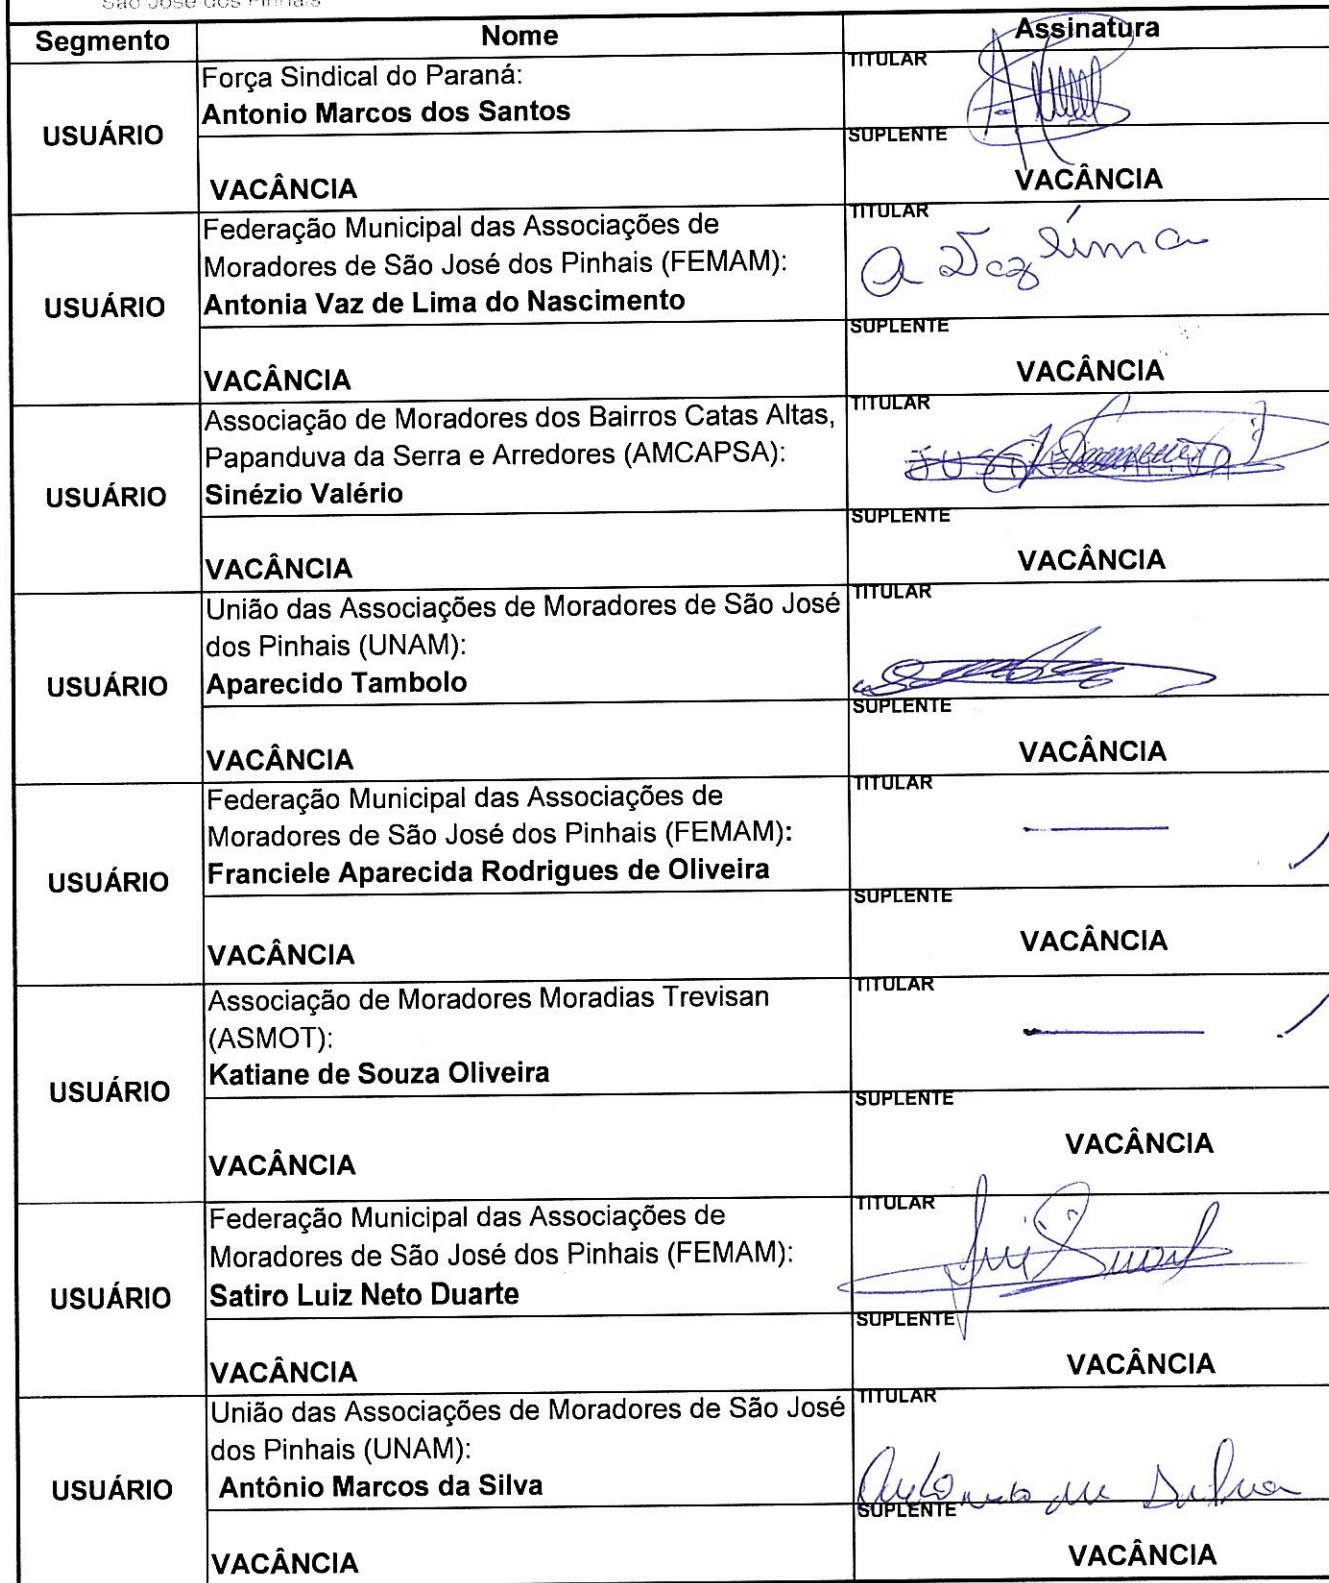 São José dos Pinhais
Segmento Nome Assinatura
USUÁRIO
Força Sindical do Paraná:
Antonio Marcos dos Santos
TITULAR
SUPLENTE
VACÂNCIA VACÂNCIA
USUÁRIO
Federação Municipal das Associações de
Moradores de São José dos Pinhais (FEMAM):
Antonia Vaz de Lima do Nascimento
TITULAR
a Vaz Lima
SUPLENTE
VACÂNCIA VACÂNCIA
USUÁRIO
Associação de Moradores dos Bairros Catas Altas,
Papanduva da Serra e Arredores (AMCAPSA):
Sinézio Valério
TITULAR
SUPLENTE
VACÂNCIA VACÂNCIA
USUÁRIO
União das Associações de Moradores de São José
dos Pinhais (UNAM):
Aparecido Tambolo
TITULAR
SUPLENTE
VACÂNCIA VACÂNCIA
USUÁRIO
Federação Municipal das Associações de
Moradores de São José dos Pinhais (FEMAM):
Franciele Aparecida Rodrigues de Oliveira
TITULAR
SUPLENTE
VACÂNCIA VACÂNCIA
USUÁRIO
Associação de Moradores Moradias Trevisan
(ASMOT):
Katiane de Souza Oliveira
TITULAR
SUPLENTE
VACÂNCIA VACÂNCIA
USUÁRIO
Federação Municipal das Associações de
Moradores de São José dos Pinhais (FEMAM):
Satiro Luiz Neto Duarte
TITULAR
SUPLENTE
VACÂNCIA VACÂNCIA
USUÁRIO
União das Associações de Moradores de São José
dos Pinhais (UNAM):
Antônio Marcos da Silva
TITULAR
SUPLENTE
VACÂNCIA VACÂNCIA